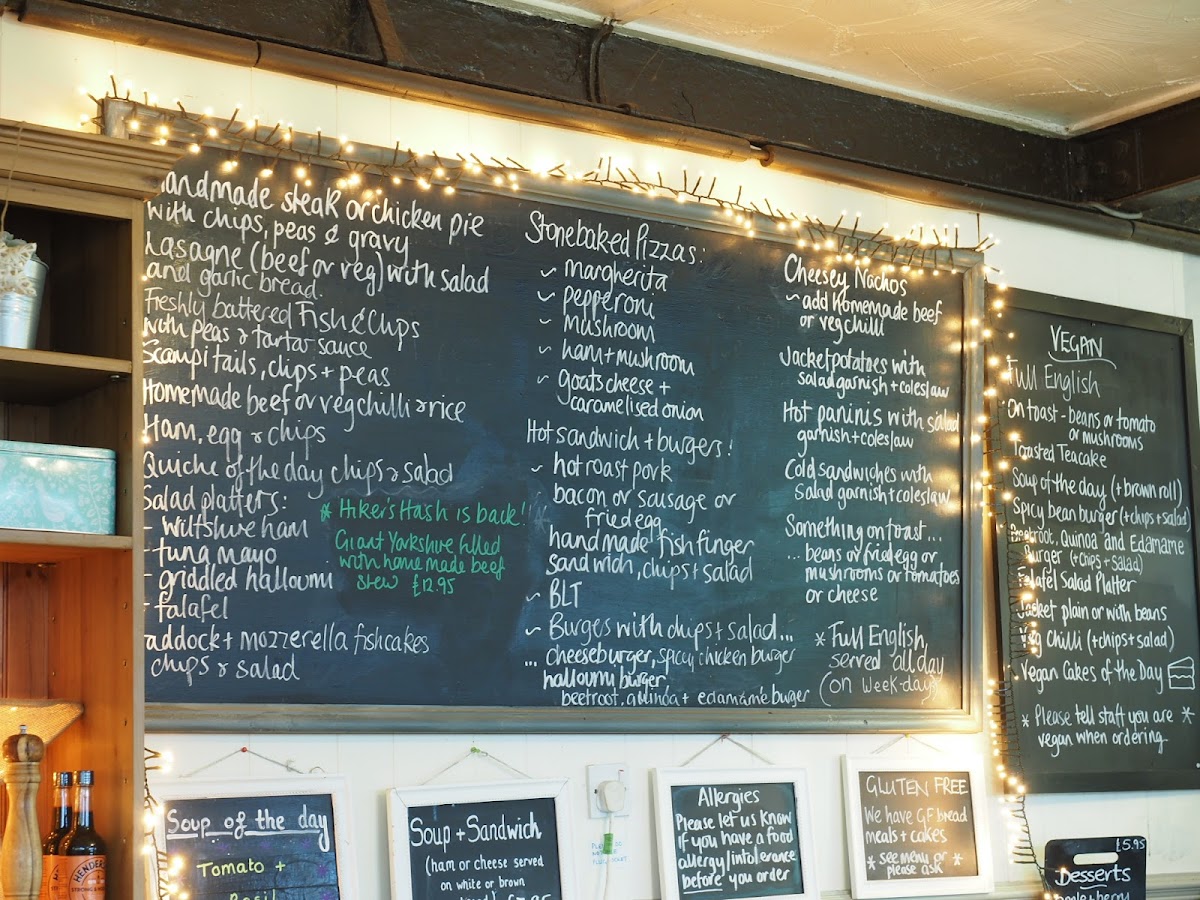 andmade steak or chicken pie
with chips, peas & gravy
Lasagne (beef or veg) with salad
and garlic bread.
Freshly battered Fish & Chips
with peas & tartar sauce
Scampi tails, chips + peas
Homemade beef or veg chilli & rice
Ham, egg & chips
Quiche of the day chips & salad
Salad platters:
- wiltshire ham
- tuna mayo
- griddled halloumi
- falafel
addock + mozzerella fishcakes
chips & salad
* Hiker's Hash is back!!
Giant Yorkshire filled
with home made beef
stew £12.95
Stonebaked Pizzas:
~ margherita
~ pepperoni
~ mushroom
~ ham + mushroom
~ goats cheese +
caramelised onion
Hot sandwich + burgers!
~ hot roast pork
bacon or sausage or
fried egg
handmade fish finger
sandwich, chips + salad
~ BLT
~ Burges with chips + salad...
... cheeseburger, spicy chicken burger
halloumi burger
beetroot, quinoa + edamame burger
Cheesey Nachos
~ add homemade beef
or veg chilli
Jacket potatoes with
salad garnish + coleslaw
Hot paninis with salad
garnish + coleslaw
Cold sandwiches with
salad garnish + coleslaw
Something on toast...
... beans or fried egg or
mushrooms or tomatoes
or cheese
* Full English
served all day
(on week-days)
VEGAN
Full English
On toast - beans or tomato
or mushrooms
Toasted Teacake
Soup of the day (+ brown roll)
Spicy bean burger (+chips + salad)
Beetroot, Quinoa and Edamame
Burger (+chips + salad)
Falafel Salad Platter
Jacket plain or with beans
Veg Chilli (+chips + salad)
Vegan Cakes of the Day
* Please tell staff you are *
vegan when ordering
Soup of the day
Tomato +
Basil
Soup + Sandwich
(ham or cheese served
on white or brown
Allergies
Please let us know
if you have a food
allergy/intolerance
before you order
GLUTEN FREE
We have GF bread
meals + cakes
* see menu or *
please ask
£5.95
Desserts
HENDER